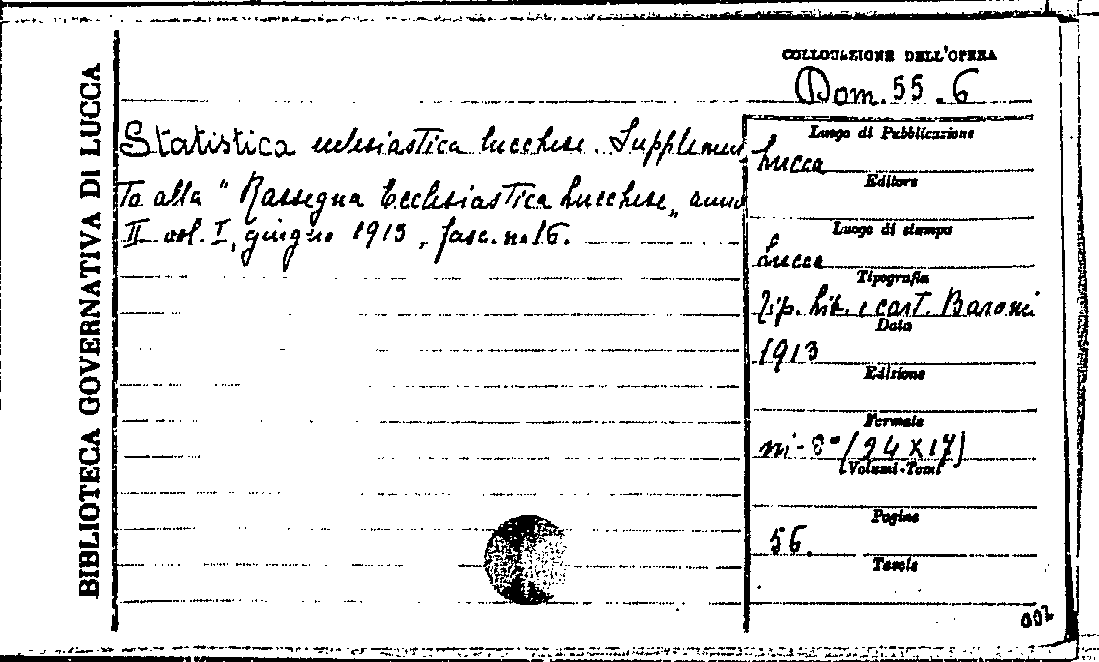 BIBLIOTECA GOVERNATIVA DI LUCCA
Statistica ecclesiastica lucchese. Supplemen
to alla "Rassegna Ecclesiastica Lucchese„ anno
II vol. I, giugno 1913, fasc. n. 16.
COLLOCAZIONE DELL'OPERA
Dom. 55.6
Luogo di Pubblicazione
Lucca
Editore
Luogo di stampa
Lucca
Tipografia
Tip. Lit. e cart. Baroni
Data
1913
Edizione
Formato
in-8° (24X17)
Volumi-Tomi
Pagine
56.
Tavole
002